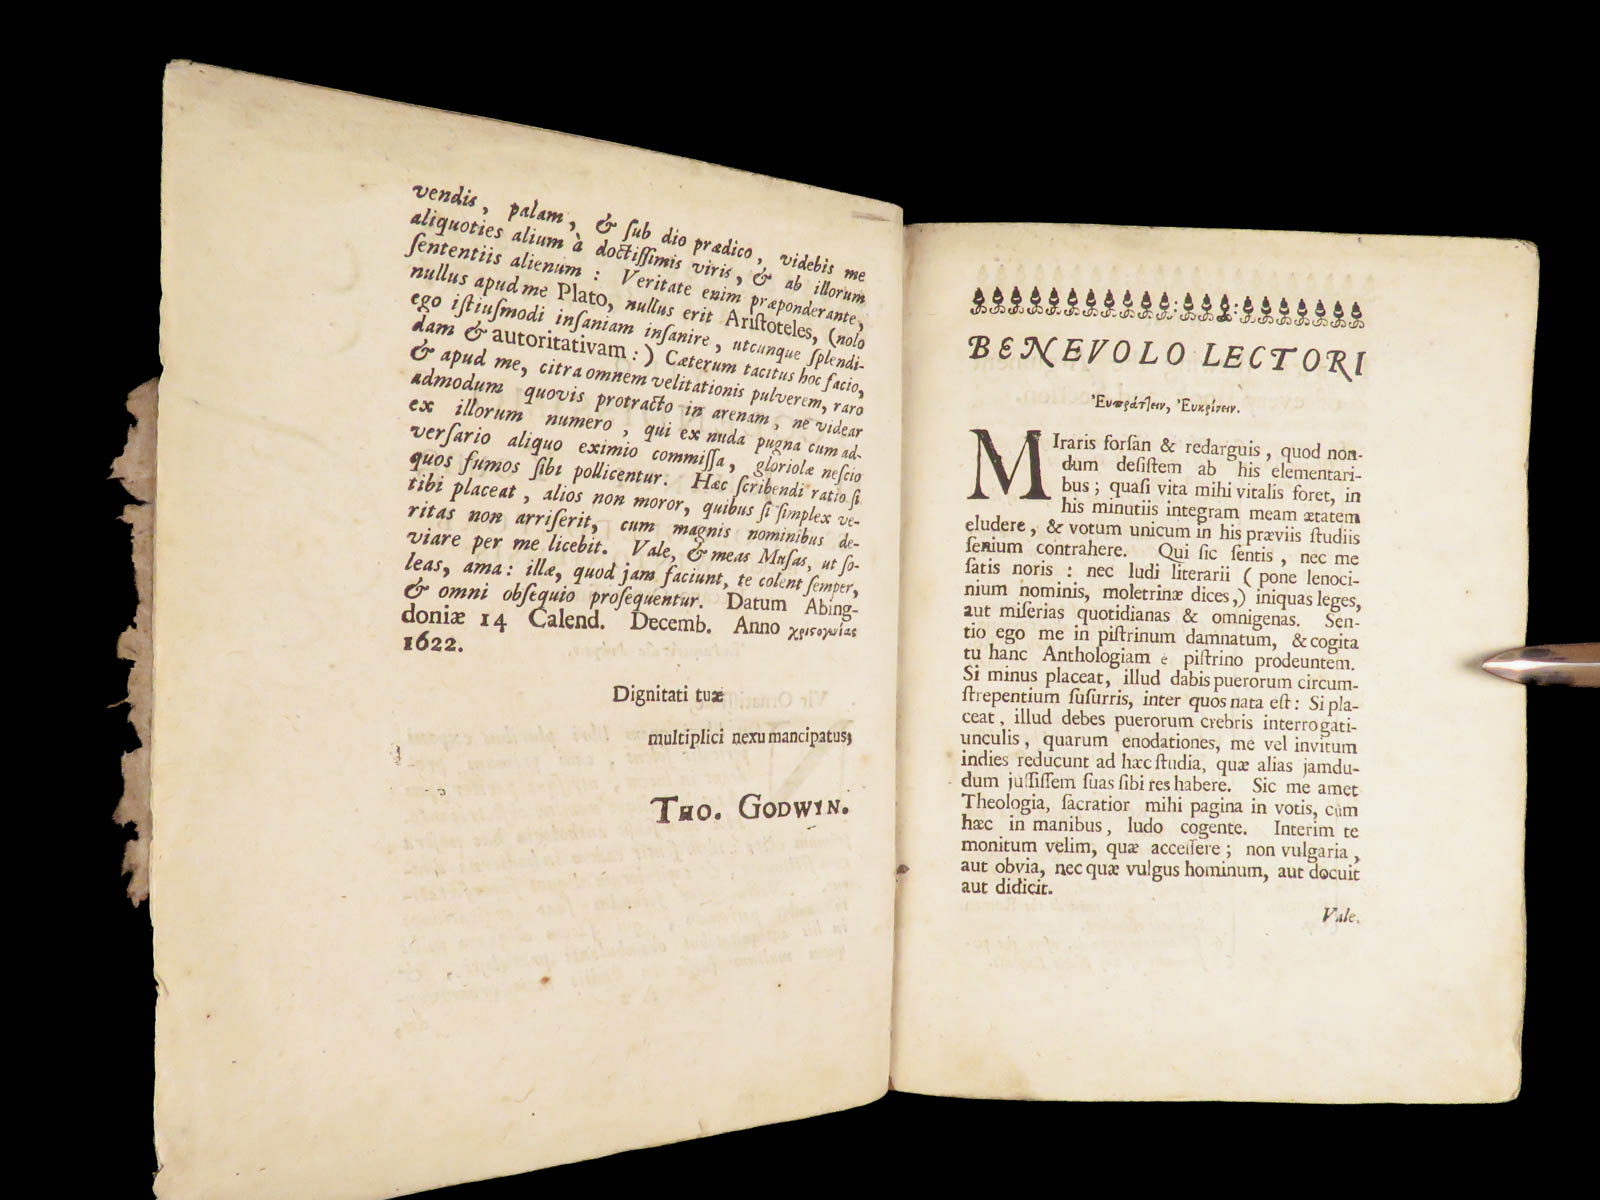 vendis, palam, & ſub dio prædico, videbis me
aliquoties alium à doctiſſimis viris, & ab illorum
ſententiis alienum : Veritate enim præponderante,
nullus apud me Plato, nullus erit Ariſtoteles, (nolo
ego iſtiuſmodi inſaniam inſanire, utcunque ſplendi-
dam & autoritativam : ) Cæterum tacitus hoc facio,
& apud me, citra omnem velitationis pulverem, raro
admodum quovis protracto in arenam, ne videar
ex illorum numero, qui ex nuda pugna cum ad-
verſario aliquo eximio commiſſa, gloriolæ neſcio
quos fumos ſibi pollicentur. Hæc ſcribendi ratio ſi
tibi placeat, alios non moror, quibus ſi ſimplex ve-
ritas non arriſerit, cum magnis nominibus de-
viare per me licebit. Vale, & meas Muſas, ut ſo-
leas, ama : illæ, quod jam faciunt, te colent ſemper,
& omni obſequio proſequentur. Datum Abing-
doniæ 14 Calend. Decemb. Anno
1622.
Dignitati tuæ
multiplici nexu mancipatus,
THO. GODWIN.
BENEVOLO LECTORI
Ἐυπράτ]ειν, Ἐυκρίνειν.
MIraris forſan & redarguis, quod non-
dum deſiſtem ab his elementari-
bus ; quaſi vita mihi vitalis foret, in
his minutiis integram meam ætatem
eludere, & votum unicum in his præviis ſtudiis
ſenium contrahere. Qui ſic ſentis, nec me
ſatis noris : nec ludi literarii ( pone lenoci-
nium nominis, moletrinæ dices,) iniquas leges,
aut miſerias quotidianas & omnigenas. Sen-
tio ego me in piſtrinum damnatum, & cogita
tu hanc Anthologiam è piſtrino prodeuntem.
Si minus placeat, illud dabis puerorum circum-
ſtrepentium ſuſurris, inter quos nata eſt : Si pla-
ceat, illud debes puerorum crebris interrogati-
unculis, quarum enodationes, me vel invitum
indies reducunt ad hæc ſtudia, quæ alias jamdu-
dum juſſiſſem ſuas ſibi res habere. Sic me amet
Theologia, ſacratior mihi pagina in votis, cum
hæc in manibus, ludo cogente. Interim te
monitum velim, quæ acceſſere ; non vulgaria,
aut obvia, nec quæ vulgus hominum, aut docuit
aut didicit.
Vale.